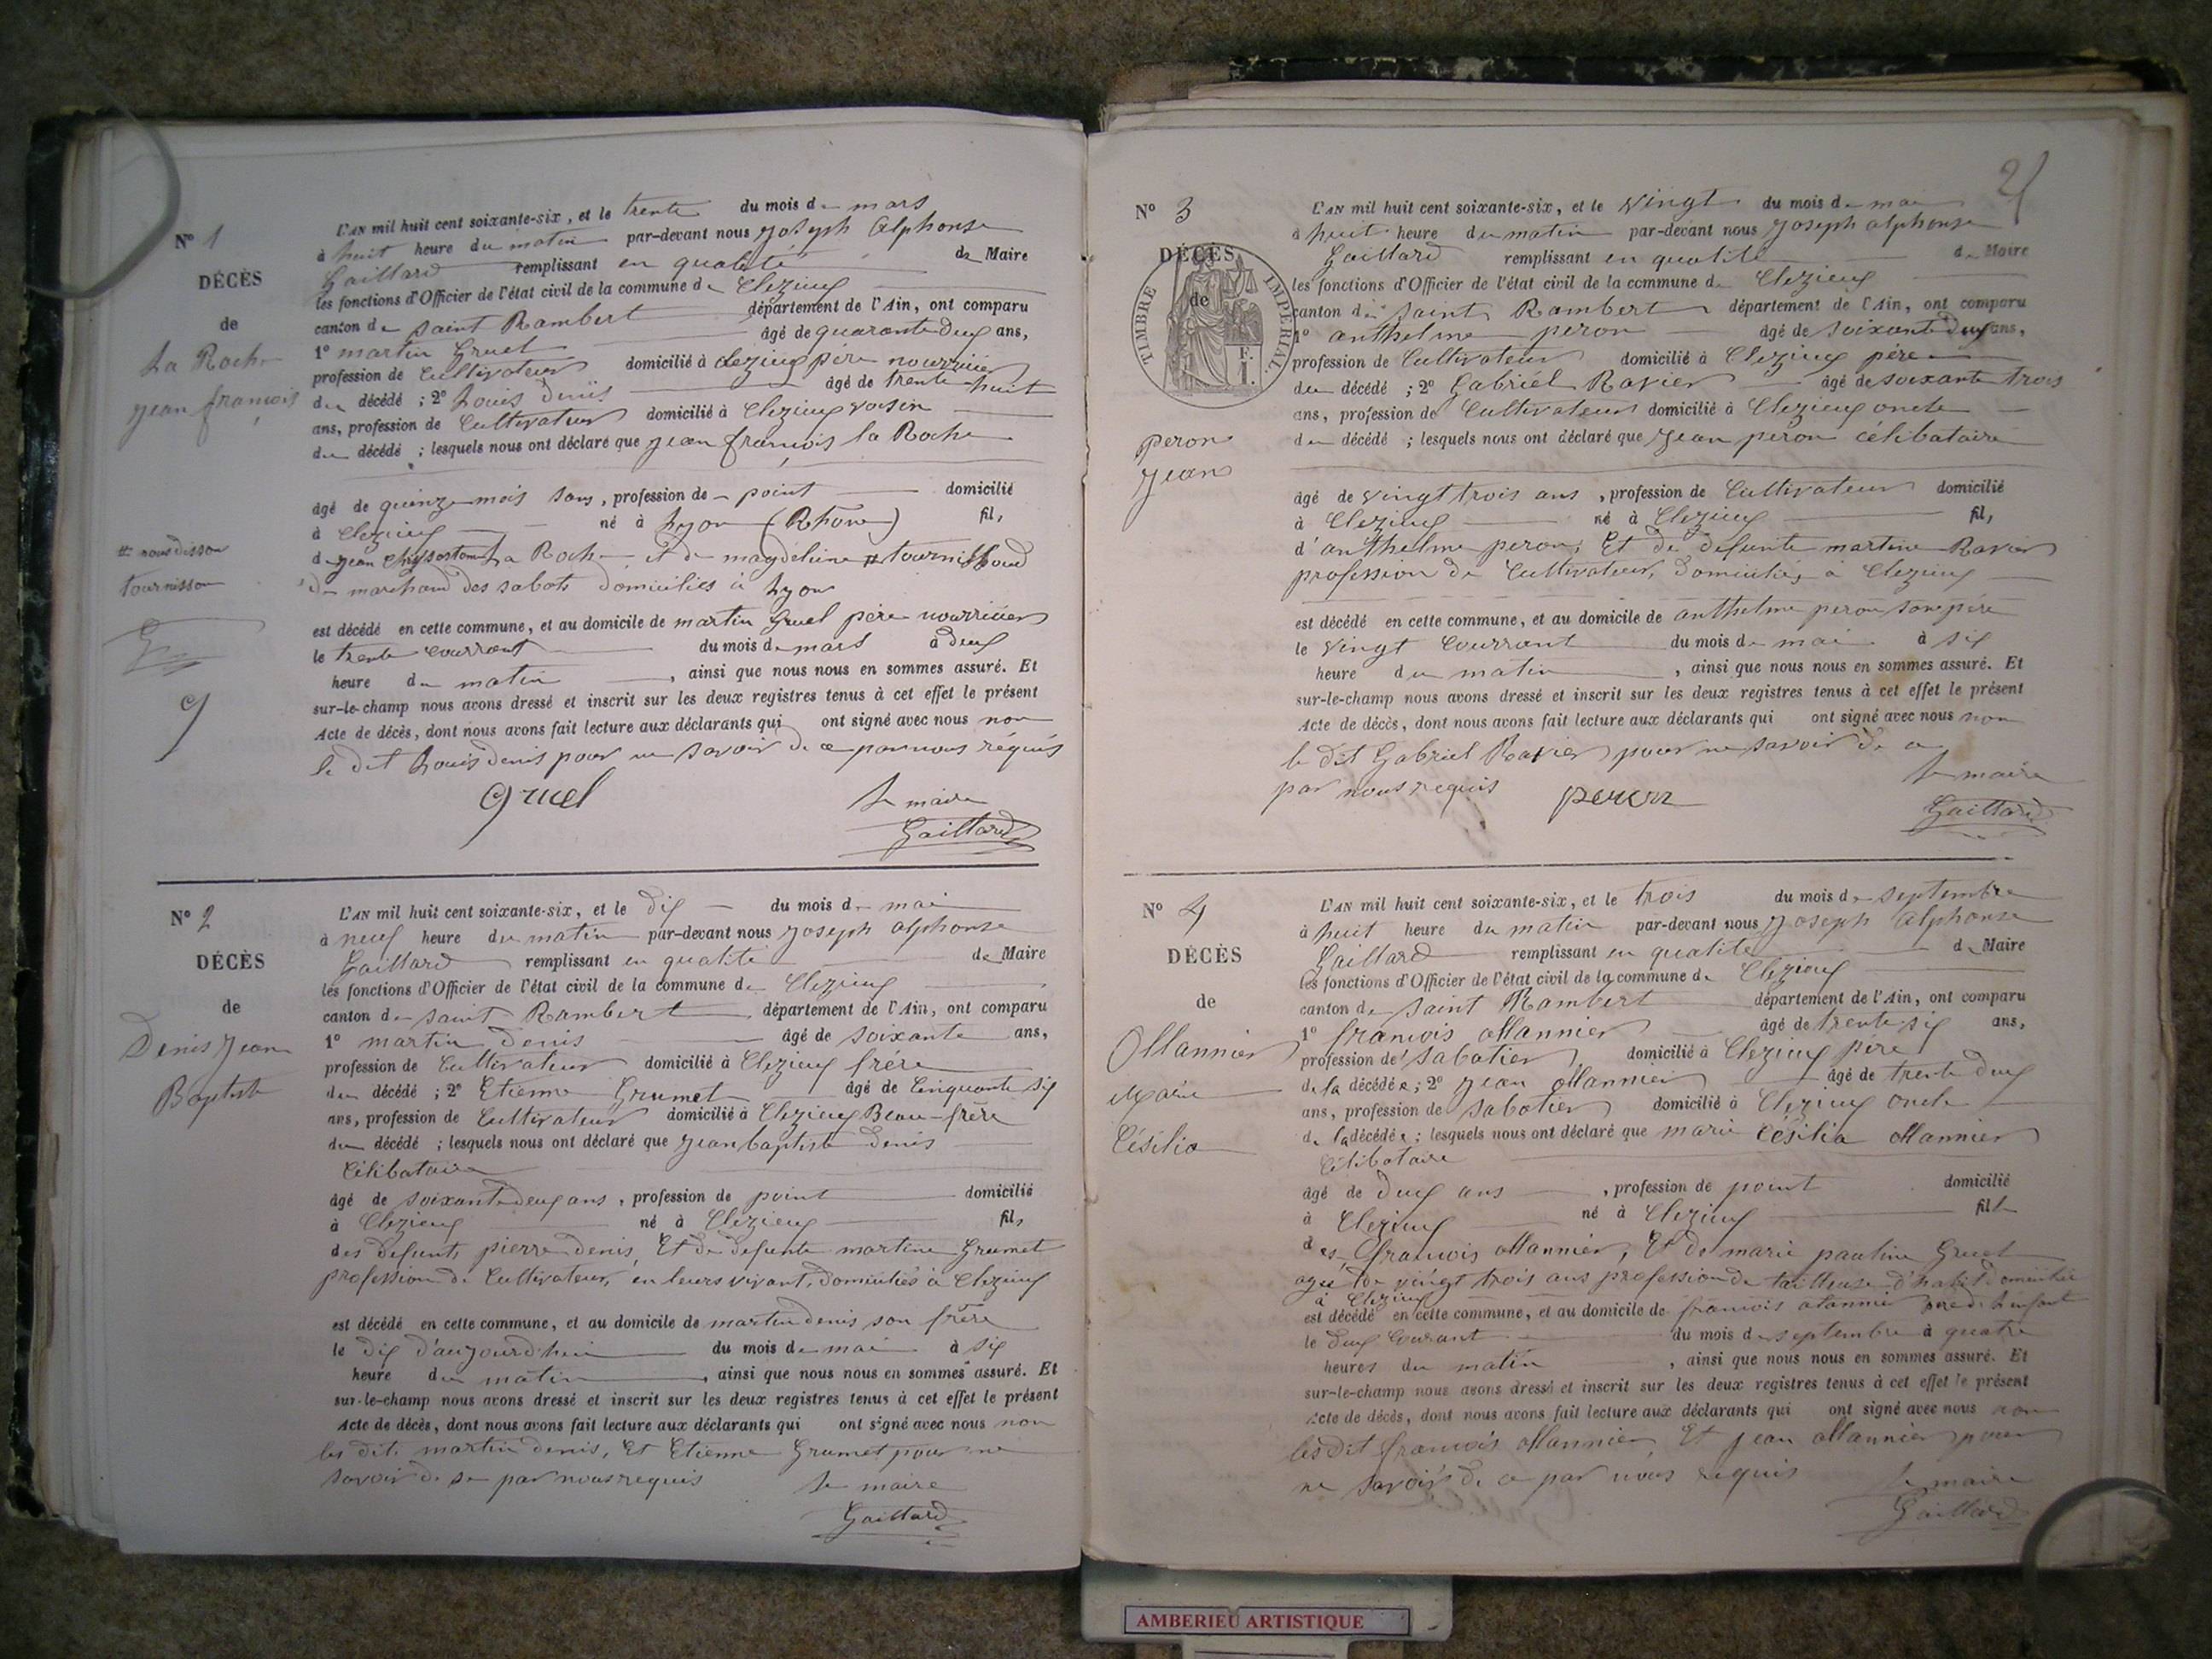 Nº 1
DÉCÈS
de
La Roche
jean françois
# nous disson
tournisson
L'AN mil huit cent soixante-six, et le trente du mois de mars
à huit heure du matin par-devant nous joseph alphonse
Gaillard remplissant en qualité de Maire
les fonctions d'Officier de l'état civil de la commune de Clezieux
canton de saint Rambert département de l'Ain, ont comparu
1º martin Gruel âgé de quarante deux ans,
profession de Cultivateur domicilié à clezieux père nourricier
du décédé ; 2º Louis denis âgé de trente-huit
ans, profession de Cultivateur domicilié à Clezieux voisin
du décédé ; lesquels nous ont déclaré que jean françois la Roche
âgé de quinze mois , profession de point domicilié
à Clezieux né à Lyon (Rhône) fils
de jean Chrysostome La Roche et de magdeleine # tournissoud
de marchand des sabots domiciliés à Lyon
est décédé en cette commune, et au domicile de martin Gruel père nourricier
le trente courrant du mois de mars à deux
heure du matin , ainsi que nous nous en sommes assuré. Et
sur-le-champ nous avons dressé et inscrit sur les deux registres tenus à cet effet le présent
Acte de décès, dont nous avons fait lecture aux déclarants qui ont signé avec nous non
le dit Louis denis pour ne savoir de ce par nous réquis
Gruel le maire
Gaillard
Nº 2
DÉCÈS
de
Denis jean
Baptiste
L'AN mil huit cent soixante-six, et le dix du mois de mai
à neuf heure du matin par-devant nous joseph alphonse
Gaillard remplissant en qualité de Maire
les fonctions d'Officier de l'état civil de la commune de Clezieux
canton de saint Rambert département de l'Ain, ont comparu
1º martin denis âgé de soixante ans,
profession de Cultivateur domicilié à Clezieux frére
du décédé ; 2º Etienne Grumet âgé de Cinquante six
ans, profession de Cultivateur domicilié à Clezieux Beau-frére
du décédé ; lesquels nous ont déclaré que jean baptiste denis
Célibataire
âgé de soixante deux ans , profession de point domicilié
à Clezieux né à Clezieux fils
des defunts pierre denis, Et de defunte martine Grumet
profession de Cultivateur, en leurs vivant, domiciliés à Clezieux
est décédé en cette commune, et au domicile de martin denis son frère
le dix d'aujourd'hui du mois de mai à six
heure du matin , ainsi que nous nous en sommes assuré. Et
sur-le-champ nous avons dressé et inscrit sur les deux registres tenus à cet effet le présent
Acte de décès, dont nous avons fait lecture aux déclarants qui ont signé avec nous non
les dits martin denis, Et Etienne Grumet pour ne
savoir de se par nous requis le maire
Gaillard
2
Nº 3
DÉCÈS
de
TIMBRE IMPERIAL
F.
I.
peron
jean
L'AN mil huit cent soixante-six, et le Vingt du mois de mai
à huit heure du matin par-devant nous joseph alphonse
Gaillard remplissant en qualité de Maire
les fonctions d'Officier de l'état civil de la commune de Clezieux
canton de saint Rambert département de l'Ain, ont comparu
1º anthelme peron âgé de soixante deux ans,
profession de Cultivateur domicilié à Clezieux pére
du décédé ; 2º Gabriel Ravier âgé de soixante trois
ans, profession de Cultivateur domicilié à Clezieux oncle
du décédé ; lesquels nous ont déclaré que jean peron célibataire
âgé de vingt trois ans , profession de Cultivateur domicilié
à Clezieux né à Clezieux fils
d'anthelme peron, Et de defunte martine Ravier
profession de Cultivateur, domiciliés à Clezieux
est décédé en cette commune, et au domicile de anthelme peron son pére
le Vingt Courrant du mois de mai à six
heure du matin , ainsi que nous nous en sommes assuré. Et
sur-le-champ nous avons dressé et inscrit sur les deux registres tenus à cet effet le présent
Acte de décès, dont nous avons fait lecture aux déclarants qui ont signé avec nous non
le dit Gabriel Ravier pour ne savoir de ce
par nous requis peron le maire
Gaillard
Nº 4
DÉCÈS
de
Mannier
Marie
Césilia
L'AN mil huit cent soixante-six, et le trois du mois de septembre
à huit heure du matin par-devant nous joseph alphonse
Gaillard remplissant en qualité de Maire
les fonctions d'Officier de l'état civil de la commune de Clezieux
canton de saint Rambert département de l'Ain, ont comparu
1º françois Mannier âgé de trente six ans,
profession de sabotier domicilié à Clezieux pére
de la décédée ; 2º jean Mannier âgé de trente deux
ans, profession de sabotier domicilié à Clezieux oncle
de la décédée ; lesquels nous ont déclaré que marie Césilia Mannier
Célibataire
âgé de deux ans , profession de point domicilié
à Clezieux né à Clezieux fille
des françois Mannier, Et de marie pauline Gruel
agée de vingt trois ans profession de tailleuse d'habit domiciliée
à Clezieux
est décédé en cette commune, et au domicile de françois Mannier pére de l'enfant
le deux Courant du mois de septembre à quatre
heures du matin , ainsi que nous nous en sommes assuré. Et
sur-le-champ nous avons dressé et inscrit sur les deux registres tenus à cet effet le présent
Acte de décès, dont nous avons fait lecture aux déclarants qui ont signé avec nous non
les dit françois Mannier Et jean Mannier pour
ne savoir de ce par nous requis le maire
Gaillard
AMBERIEU ARTISTIQUE